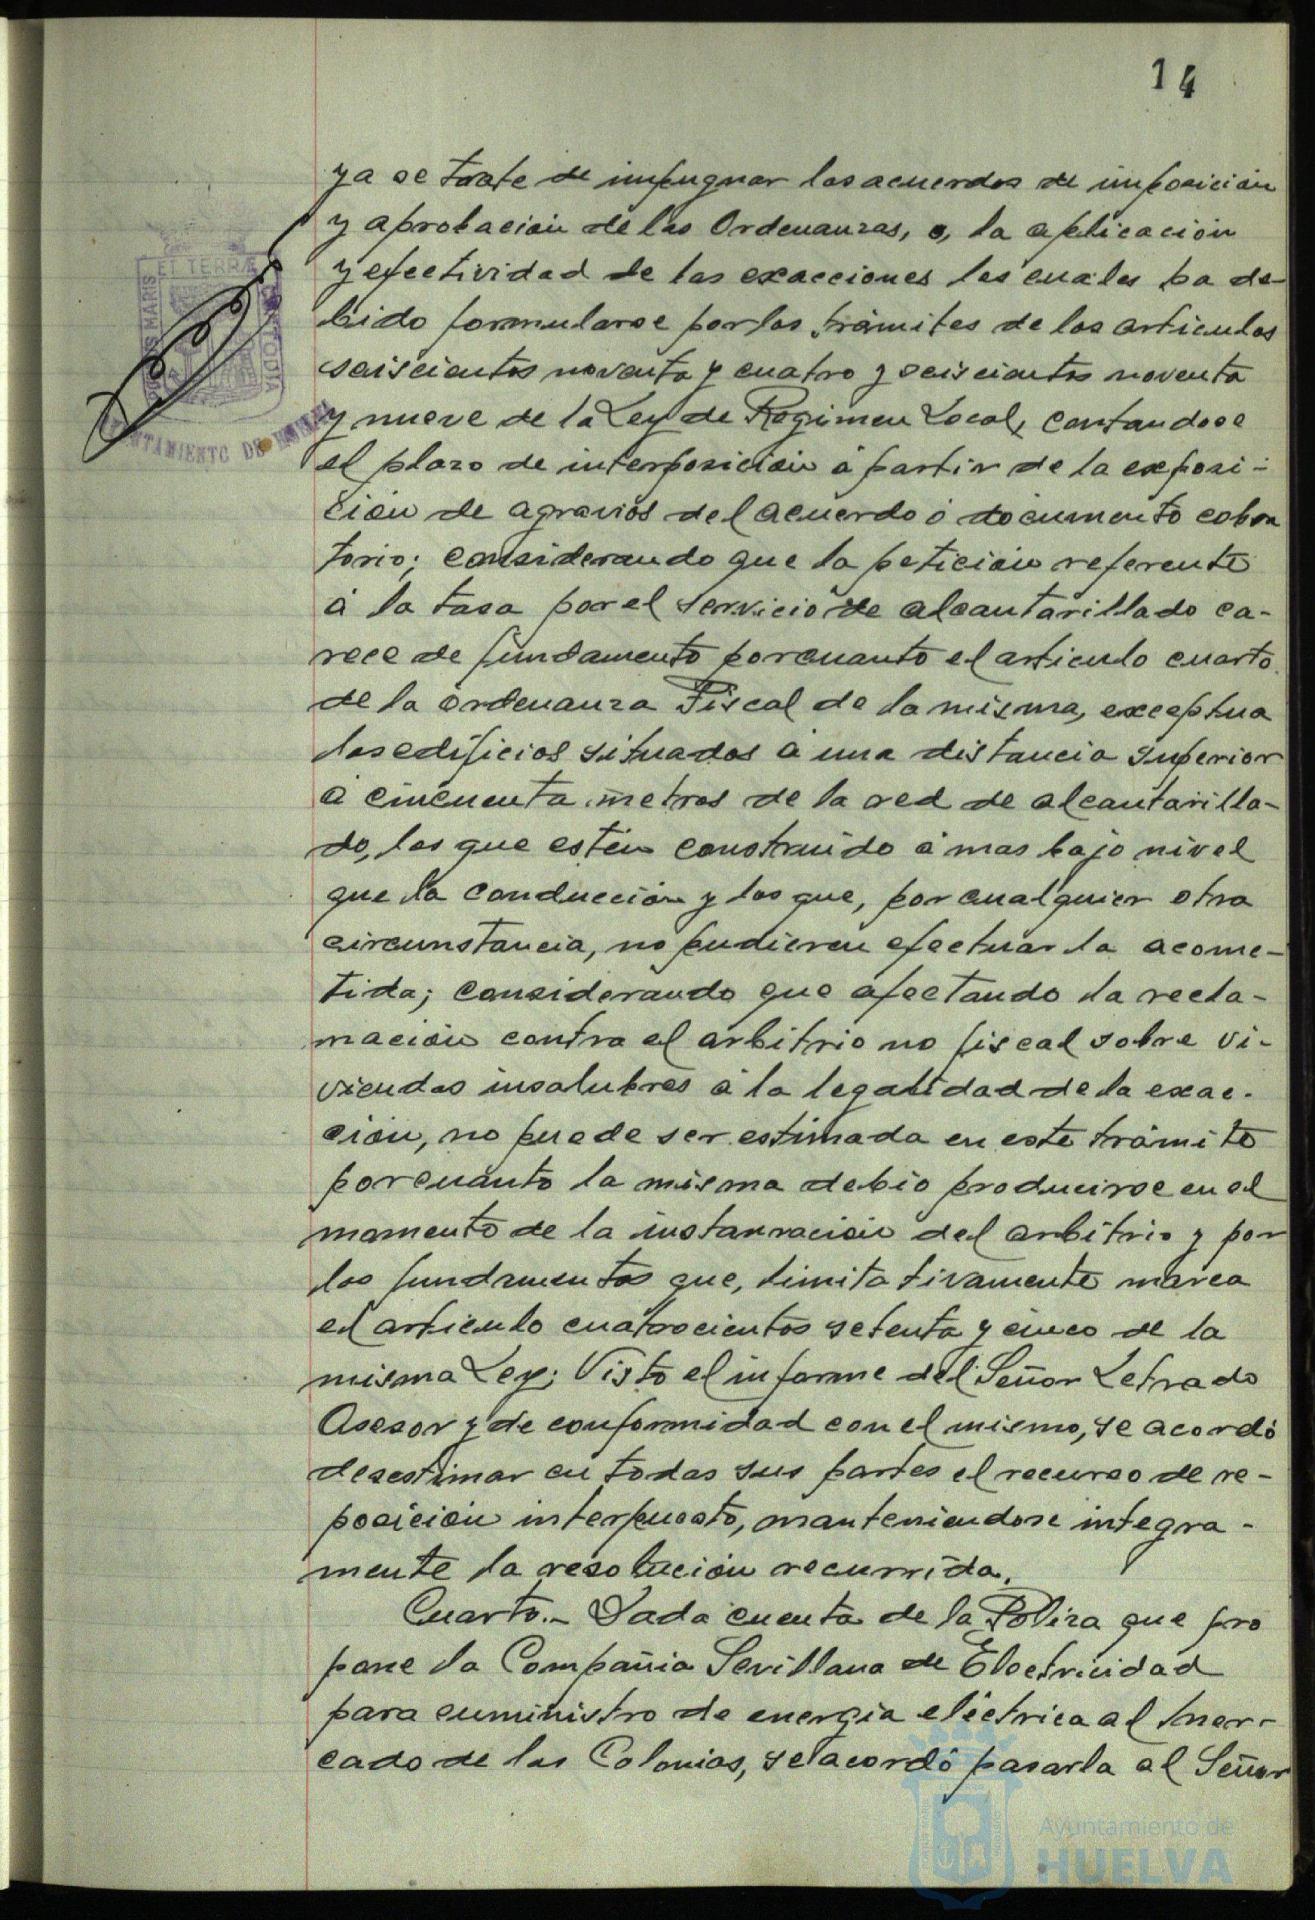 14
ya se trate de impugnar los acuerdos de imposición
y aprobación de las Ordenanzas, o, la aplicación
y efectividad de las exacciones las cuales ha de-
bido formularse por los trámites de los articulos
seiscientos noventa y cuatro y seiscientos noventa
y nueve de la Ley de Regimen Local, contandose
el plazo de interposición á partir de la exposi-
ción de agravios del acuerdo ó documento cobra
torio; considerando que la petición referente
á la tasa por el servicio de alcantarillado ca-
rece de fundamento porcuanto el articulo cuarto
de la ordenanza Fiscal de la misma, exceptua
los edificios situados á una distancia superior
á cincuenta metros de la red de alcantarilla-
do, los que estén construido á mas bajo nivel
que la conducción y los que, por cualquier otra
circunstancia, no pudieren efectuar la acome-
tida; considerando que afectando la recla-
mación contra el arbitrio no fiscal sobre vi-
viendas insalubres á la legalidad de la exac-
ción, no puede ser estimada en este trámite
porcuanto la misma debió producirse en el
momento de la instauración del arbitrio y por
los fundamentos que, limitativamente marca
el articulo cuatrocientos setenta y cinco de la
misma Ley; Visto el informe del Señor Letrado
Asesor y de conformidad con el mismo, se acordó
desestimar en todas sus partes el recurso de re-
posición interpuesto, manteniendose integra-
mente la resolución recurrida.
Cuarto.- Dada cuenta de la Poliza que pro
pone la Compañia Sevillana de Electricidad
para suministro de energia eléctrica al Mer-
cado de las Colonias, se acordó pasarla al Señor
PORTUS MARIS ET TERRÆ CUSTODIA
AYUNTAMIENTO DE HUELVA
Ayuntamiento de
HUELVA